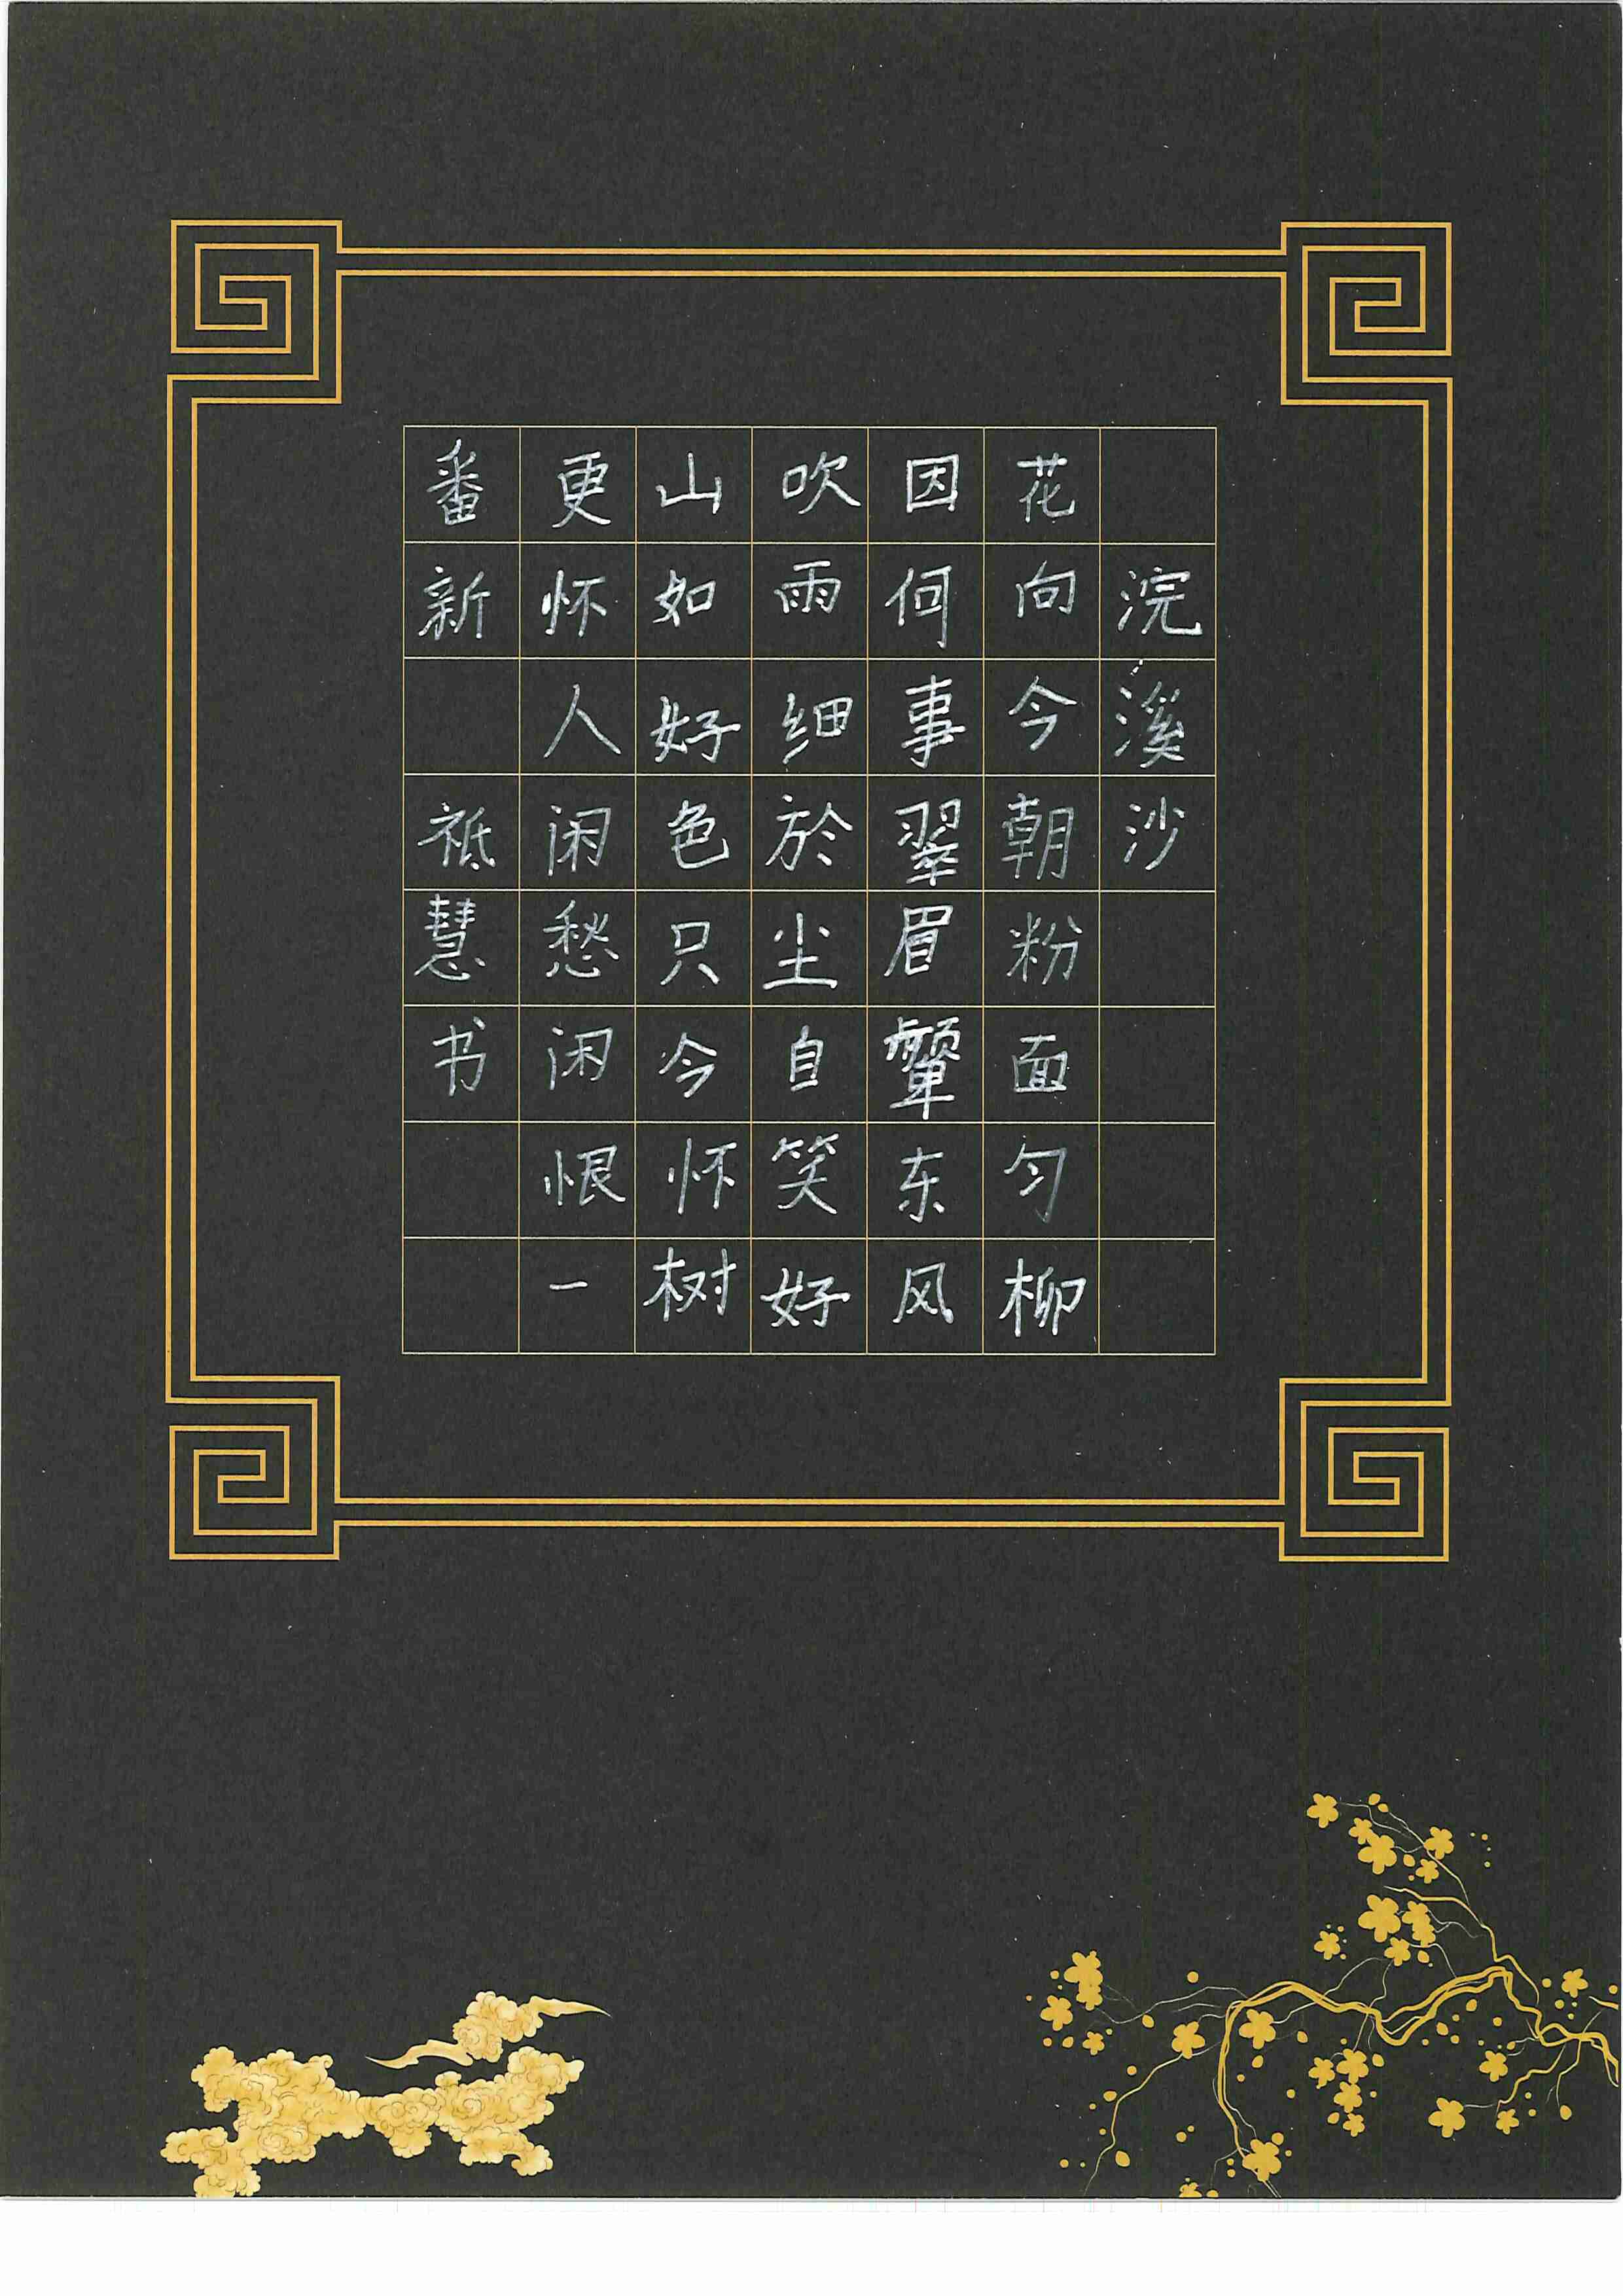 浣溪沙
花向今朝粉面匀柳
因何事翠眉颦东风
吹雨细於尘自笑好
山如好色只今怀树
更怀人闲愁闲恨一
番新 祗慧书